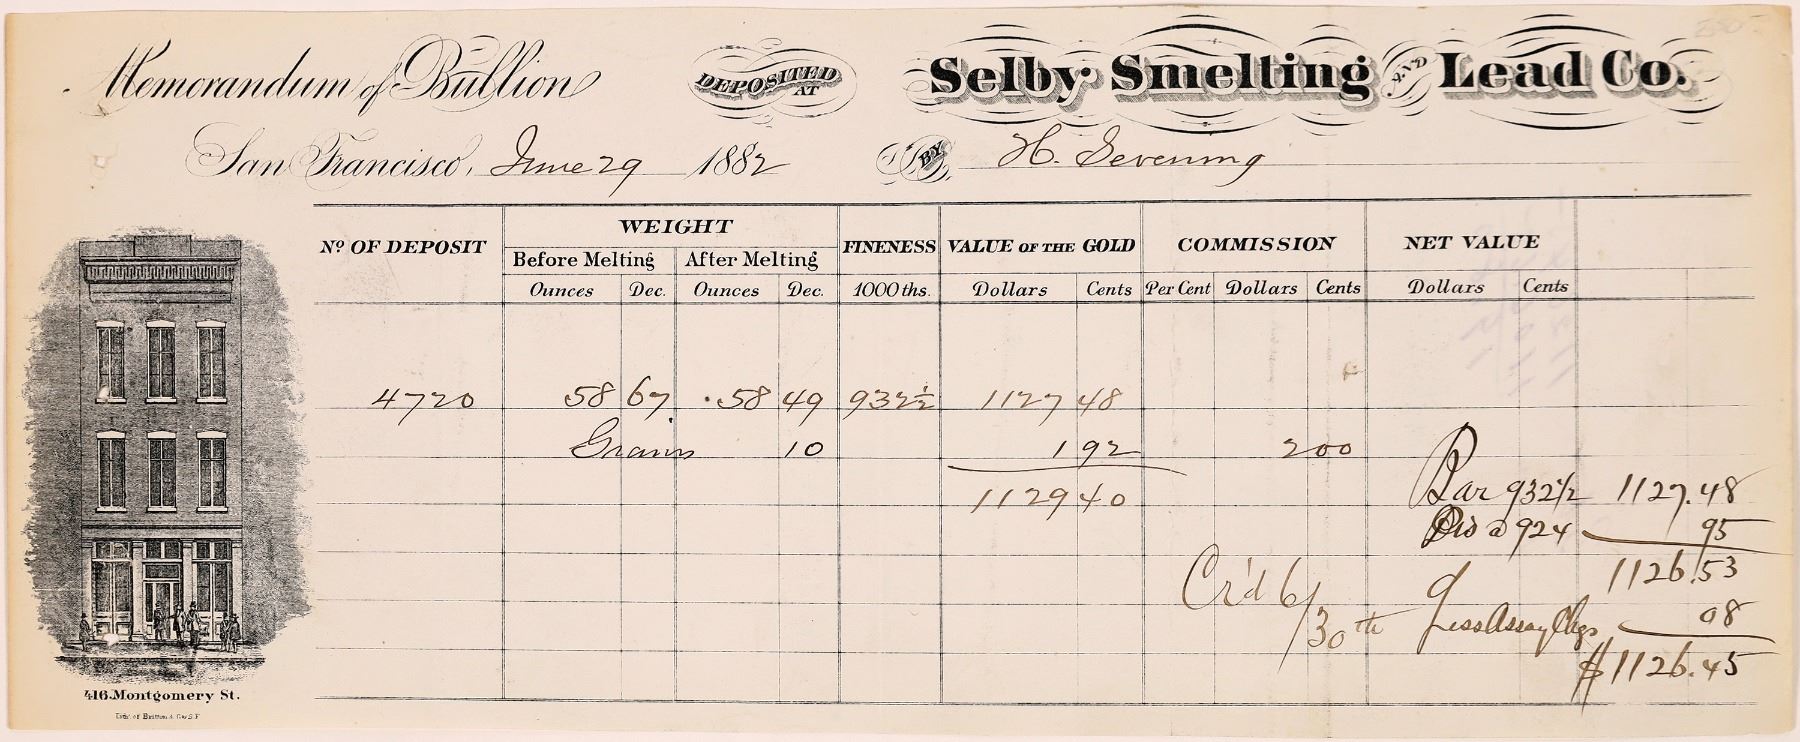 Memorandum of Bullion DEPOSITED AT Selby Smelting AND Lead Co.
San Francisco, June 29 1882 BY H. Severing
No. OF DEPOSIT WEIGHT FINENESS VALUE OF THE GOLD COMMISSION NET VALUE
Before Melting After Melting
Ounces Dec. Ounces Dec. 1000 ths. Dollars Cents Per Cent Dollars Cents Dollars Cents
4720 58 67 .58 49 932½ 1127 48
Grains 10 1 92 2 00
1129 40
Bar 932½ 1127.48
924 95
1126.53
Cr'd 6/30th Less Assay Chgs 08
$1126.45
416. Montgomery St.
Lith. of Britton & Co. S.F